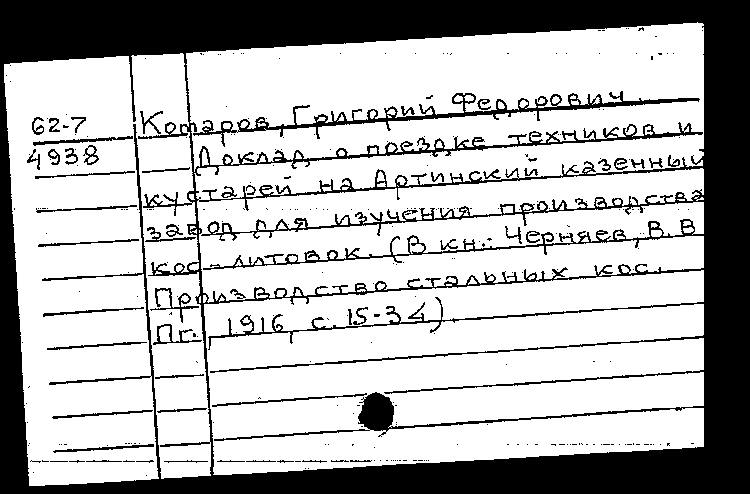 62-7 Комаров, Григорий Федорович.
4938 Доклад о поездке техников и
кустарей на Артинский казенный
завод для изучения производства
кос-литовок. (В кн.: Черняев, В. В
Производство стальных кос.
Пг., 1916, с. 15-34).